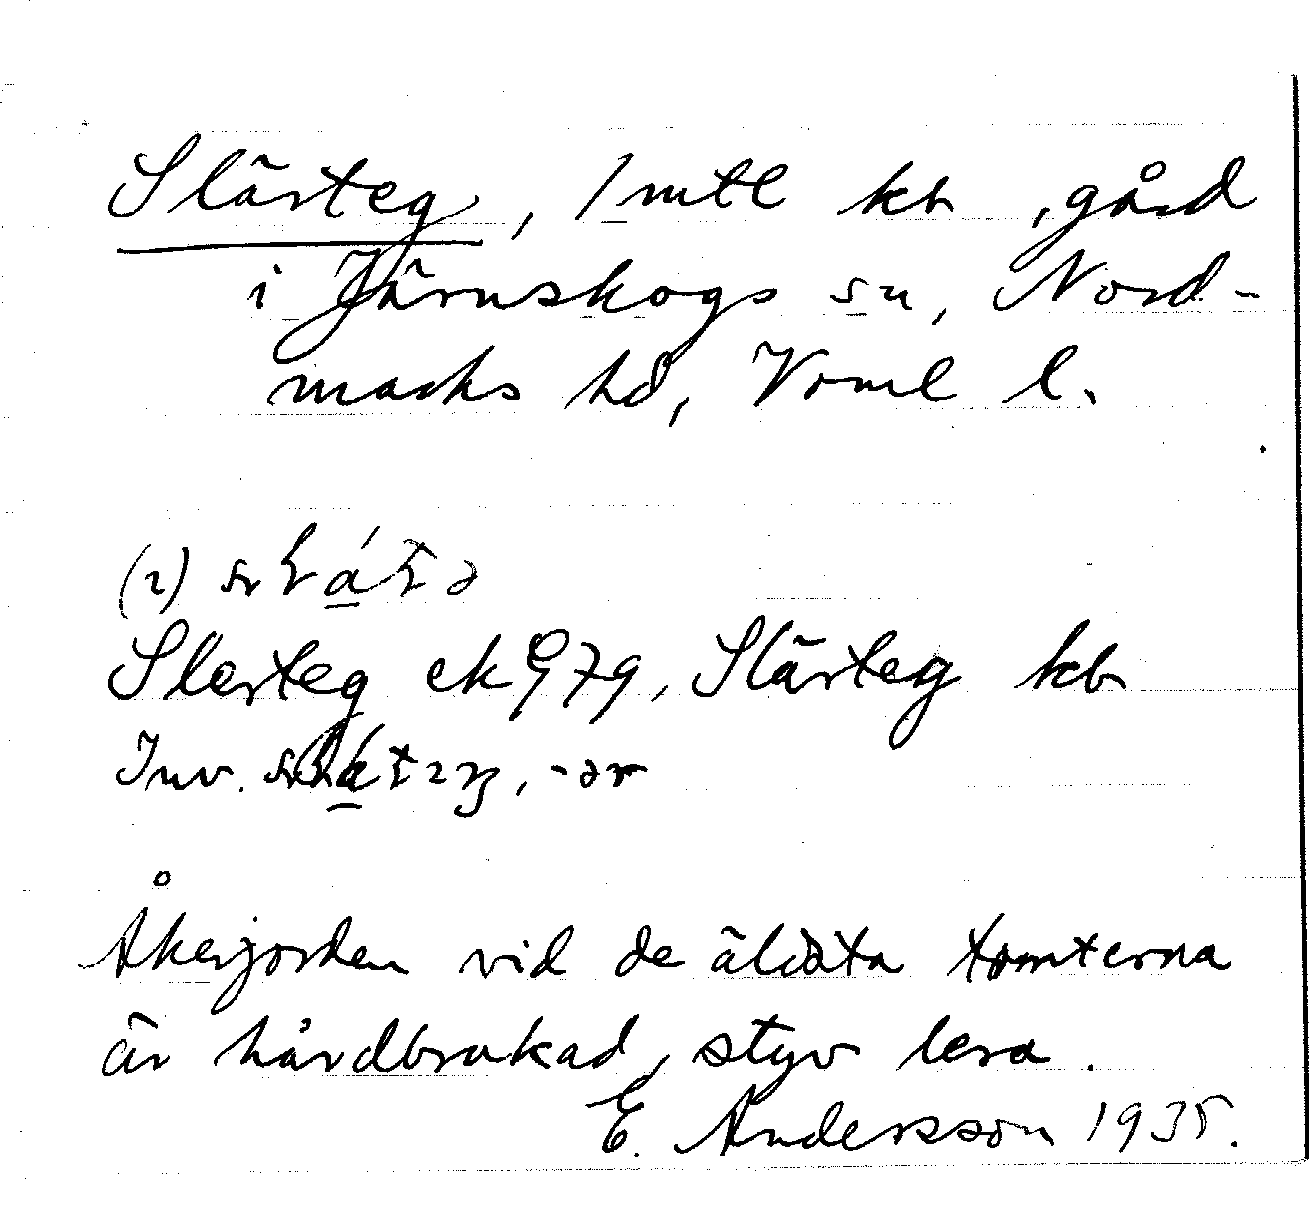 Slärteg, 1 mtl kb, gård
i Järnskogs sn, Nord-
marks hd, Vrml l.
(2)
Slerteg ek 979, Slärteg kb
Inv. , -ər
Åkerjorden vid de äldsta tomterna
är hårdbrukad, styv lera.
E. Andersson 1935.